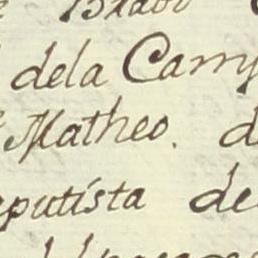 Bravo
dela Camp
Matheo. d
putista de